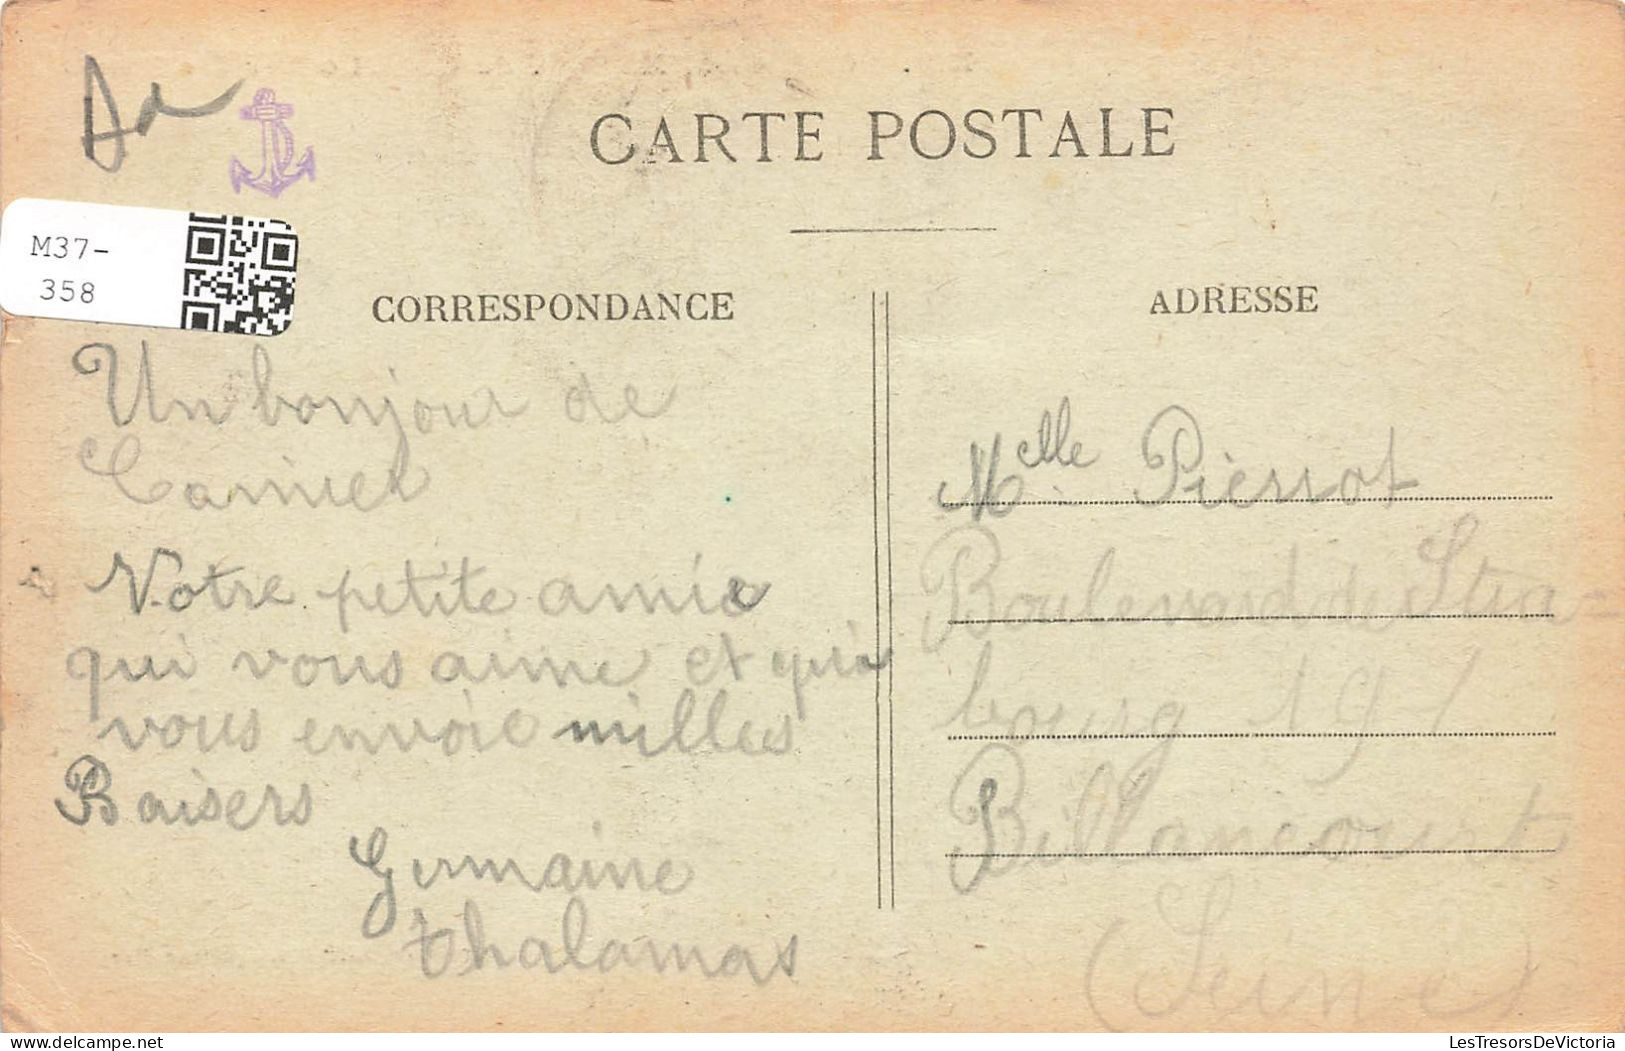 Ad
CARTE POSTALE
M37-
358
CORRESPONDANCE
Un bonjour de
Camier
Votre petite amie
qui vous aime et qui
vous envoie milles
Baisers
Germaine
thalamas
ADRESSE
Melle Pierrot
Boulevard de Stra-
bourg 191
Billancourt
(Seine)
LesTresorsDeVictoria